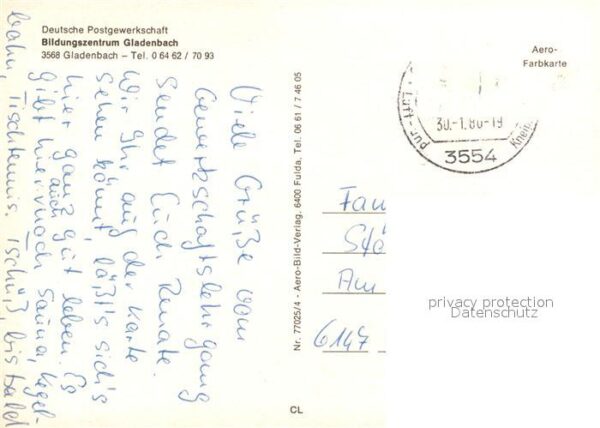 Deutsche Postgewerkschaft
Bildungszentrum Gladenbach
3568 Gladenbach – Tel. 0 64 62 / 70 93
Aero-
Farbkarte
Viele Grüße vom
Gewerkschaftslehrgang
sendet Euch Renate.
Wie Ihr auf der Karte
sehen könnt, läßt's sich's
hier ganz gut leben. Es
gibt hier auch noch Sauna, Kegel-
bahn, Tischtennis. Tschüß bis bald
Nr. 77025/4 - Aero-Bild-Verlag, 6400 Fulda, Tel. 06 61 / 7 46 05
Luft- pur
30.-1.86-19
Knei
3554
Fam
Am
6147
privacy protection
Datenschutz
CL